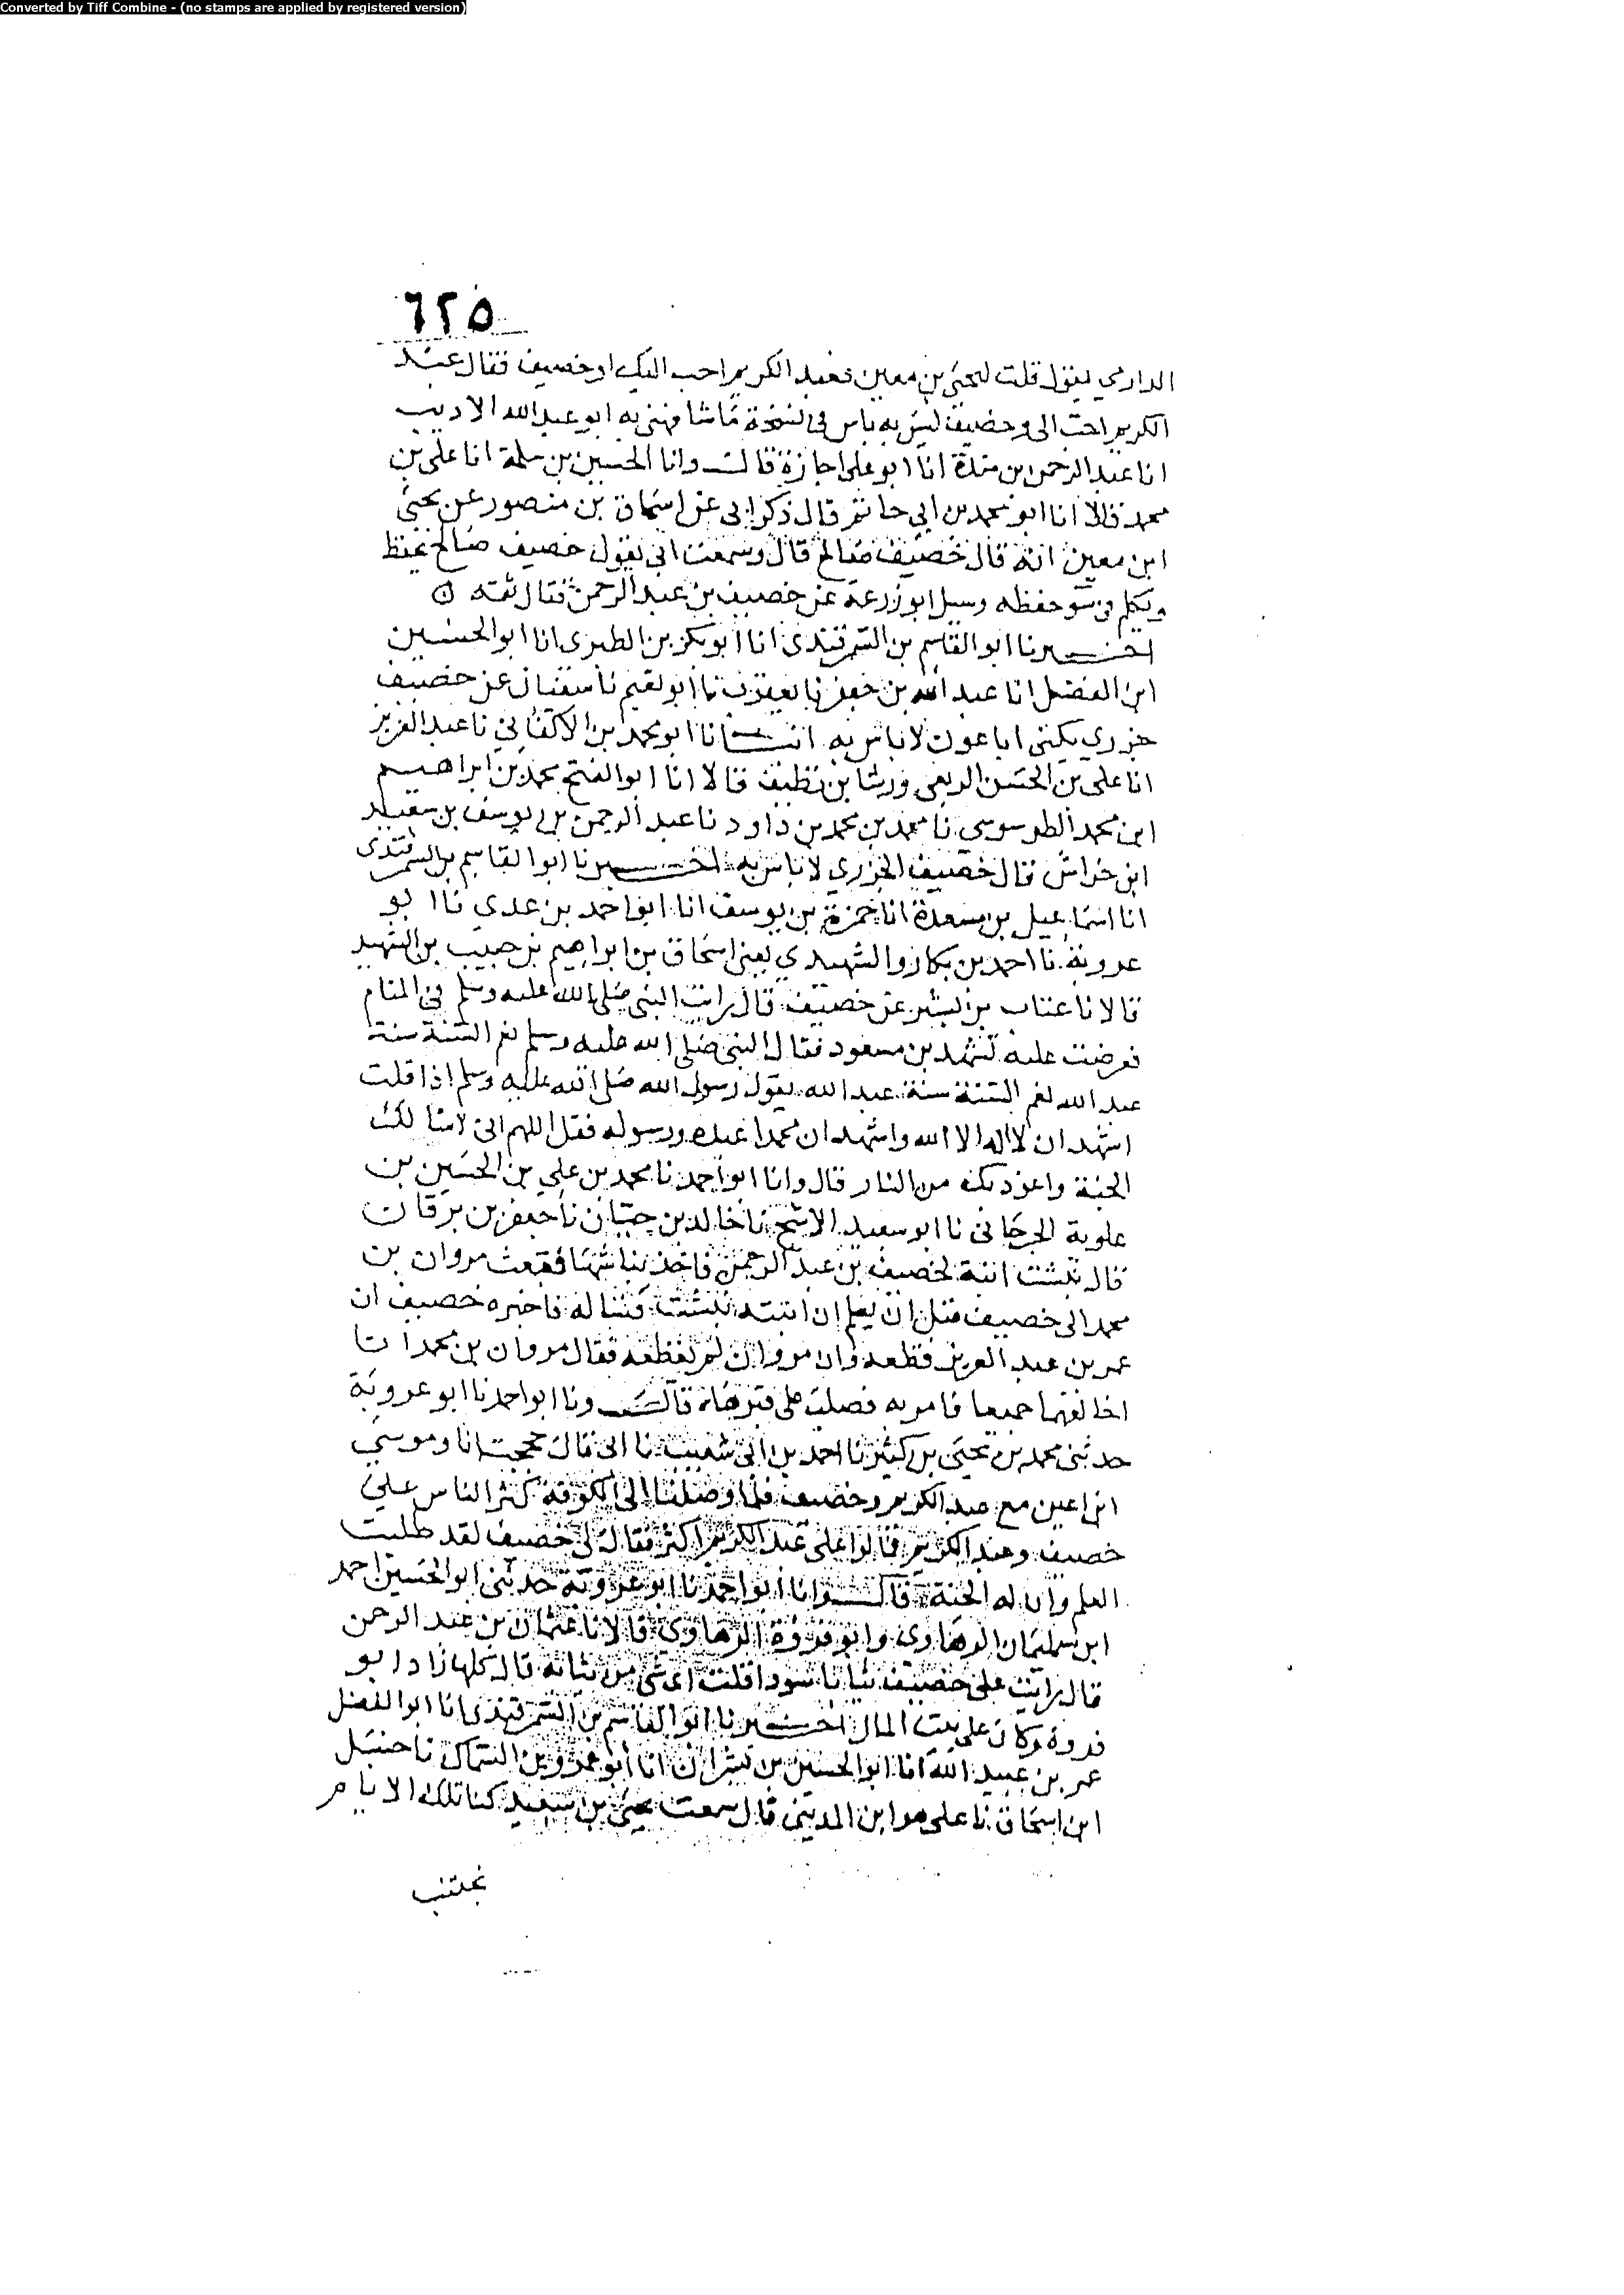 Converted by Tiff Combine - (no stamps are applied by registered version)
٦٢٥
الدارمي يقول قلت ليحيى بن معين فعبد الكريم احب اليك او خصيف فقال عبد
الكريم احب الى وخصيف ليس به باس في نسخة ما شافهني به ابو عبد الله الاديب
انا عبد الرحمن بن مندة انا ابو على اجازة قال وانا الحسين بن سلمة انا على بن
محمد قالا انا ابو محمد بن ابي حاتم قال ذكر ابى عن اسحاق بن منصور عن يحيى
ابن معين انه قال خصيف صالح قال وسمعت ابى يقول خصيف صالح يخلط
وتكلم في سو حفظه وسيل ابو زرعة عن خصيف بن عبد الرحمن فقال ثقه ۞
اخبرنا ابو القاسم بن السمرقندى انا ابو بكر بن الطبرى انا ابو الحسين
ابن الفضل انا عبد الله بن جعفر نا يعقوب نا ابو نعيم نا سفيان عن خصيف
جزري يكنى ابا عون لا باس به انبانا ابو محمد بن الاكفاني نا عبد العزيز
انا على بن الحسن الربعى ورشا بن نظيف قالا انا ابو الفتح محمد بن ابراهيم
ابن محمد الطرسوسي نا محمد بن محمد بن داود نا عبد الرحمن بن يوسف بن سعيد
ابن خراش قال خصيف الجزري لا باس به اخبرنا ابو القاسم بن السمرقندى
انا اسماعيل بن مسعدة انا حمزة بن يوسف انا ابو احمد بن عدي نا ابو
عروبة نا احمد بن بكار والشهيدي يعنى اسحاق بن ابراهيم بن حبيب بن الشهيد
قالا نا عتاب بن بشير عن خصيف قال رايت النبى صلى الله عليه وسلم في المنام
فعرضت عليه تشهد بن مسعود فقال النبى صلى الله عليه وسلم نعم السنة سنة
عبد الله نعم السنة سنة عبد الله يقول رسول الله صلى الله عليه وسلم اذا قلت
اشهد ان لا اله الا الله واشهد ان محمدا عبده ورسوله فقل اللهم انى اسالك
الجنة واعوذ بك من النار قال وانا ابو احمد نا محمد بن علي بن الحسين بن
علوية الجرجانى نا ابو سعيد الاشج نا خالد بن حيان نا جعفر بن برقان
قال نبشت ابنة لخصيف بن عبد الرحمن فاخذ نباشها فبعث مروان بن
محمد الى خصيف قبل ان يعلم ان ابنته نبشت فساله فاخبره خصيف ان
عمر بن عبد العزيز قطعه وان مروان لم يقطعه فقال مروان بن محمد انا
اخالفهما جميعا فامر به فصلب على قبرها قال ونا ابو احمد نا ابو عروبة
حدثنى محمد بن يحيى بن كثير نا احمد بن ابى شعيب نا ابى قال حججت انا وموسى
ابن اعين مع عبد الكريم وخصيف فلما وصلنا الى الكوفة كثر الناس على
خصيف وعبد الكريم فكانوا على عبد الكريم اكثر فقال لى خصيف لقد طلبت
العلم وان له الجنة قال وانا ابو احمد نا ابو عروبة حدثنى ابو الحسين احمد
ابن سليمان الرهاوى وابو فروة الرهاوي قالا نا عثمان بن عبد الرحمن
قال رايت على خصيف ثيابا سودا قلت اى شى من ثيابه قال كلها زاد ابو
فروة وكان على بيت المال اخبرنا ابو القاسم بن السمرقندى انا ابو الفضل
عمر بن عبيد الله انا ابو الحسين بن بشران انا ابو عمرو بن السماك نا حنبل
ابن اسحاق نا على هو ابن المدينى قال سمعت يحيى بن سعيد كنا تلك الايام
نجتنب